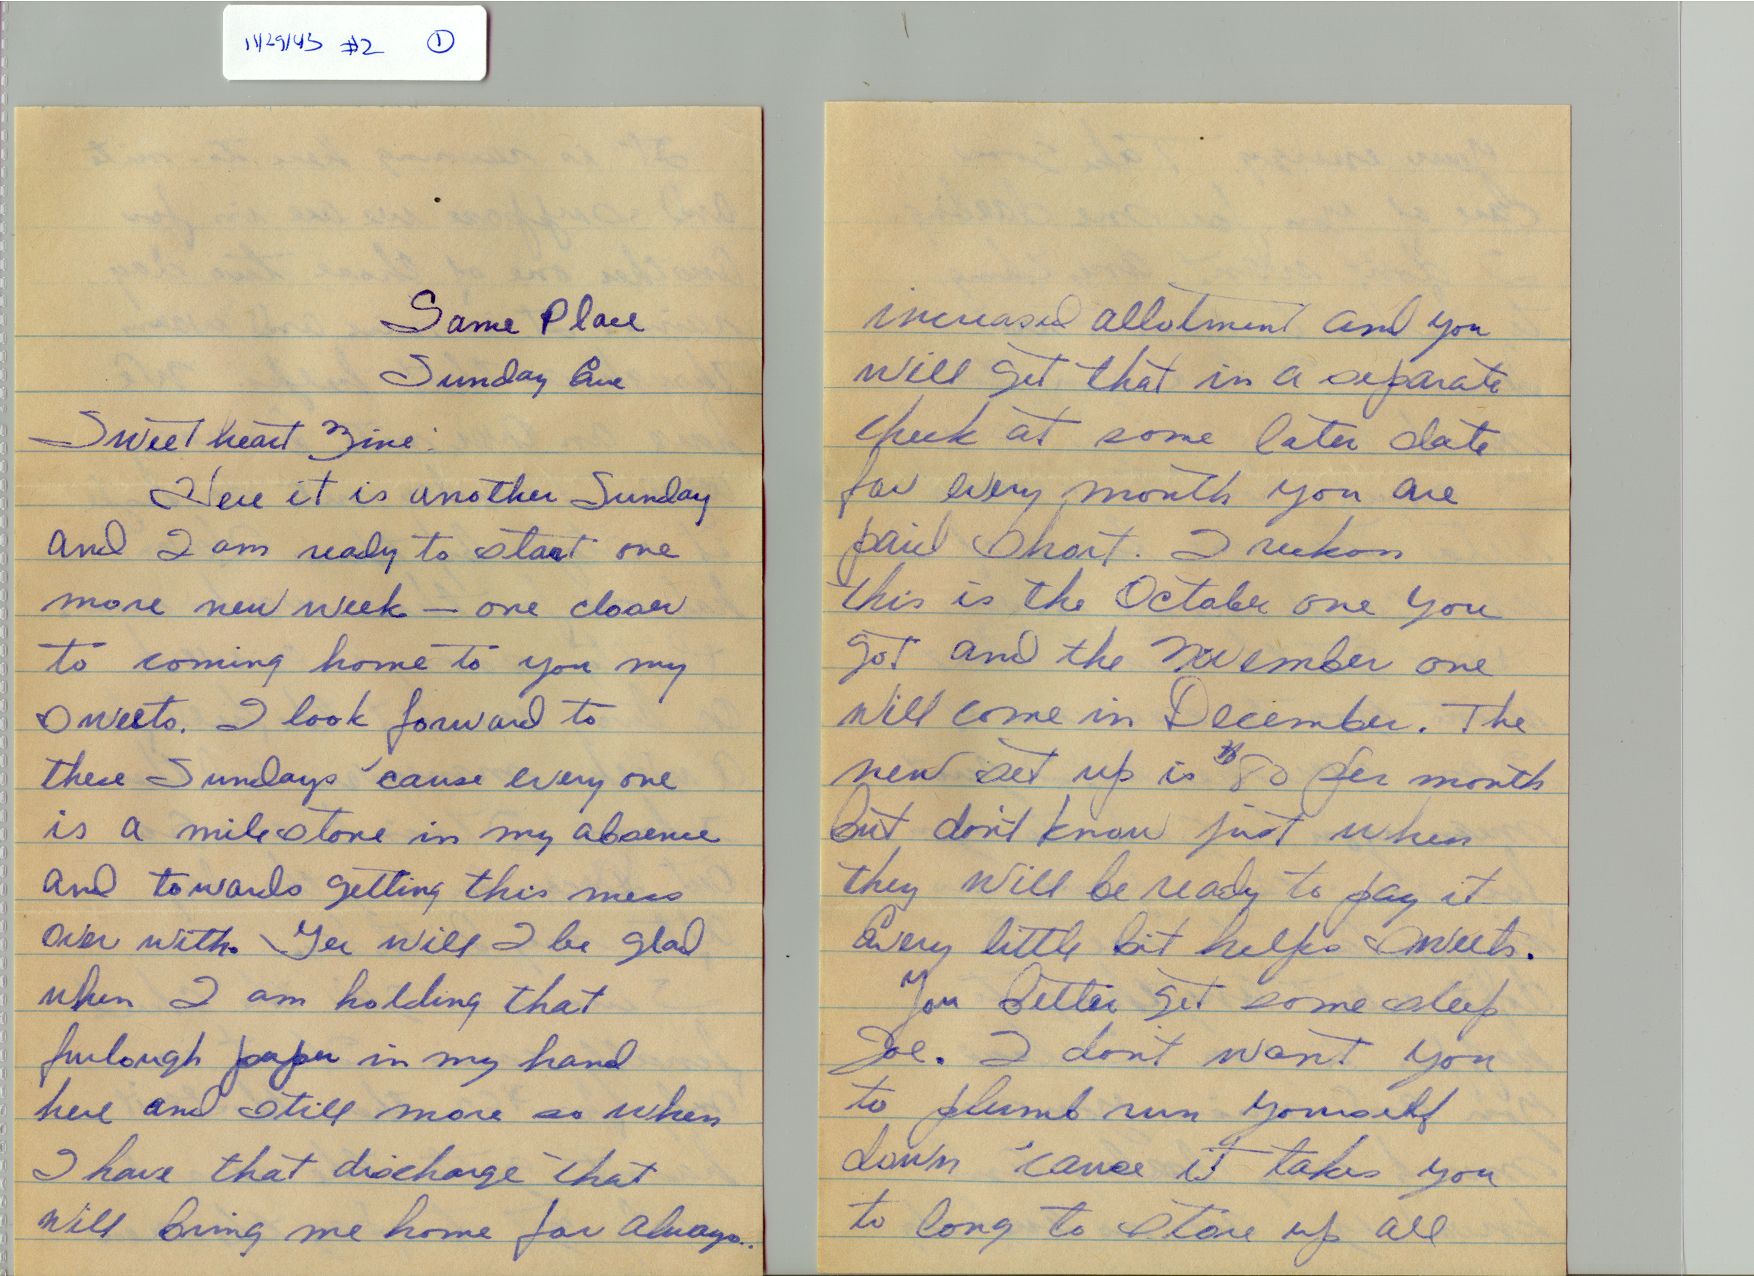 11/29/43 #2 ①
Same Place
Sunday Eve
Sweetheart Zine:
Here it is another Sunday
and I am ready to start one
more new week — one closer
to coming home to you my
sweets. I look forward to
these Sundays 'cause every one
is a milestone in my absence
and towards getting this mess
over with. Gee will I be glad
when I am holding that
furlough paper in my hand
here and still more so when
I have that discharge that
will bring me home for always.
increased allotment and you
will get that in a separate
check at some later date
for every month you are
paid short. I reckon
this is the October one you
got and the November one
will come in December. The
new set up is $80 per month
but don't know just when
they will be ready to pay it
Every little bit helps sweets.
You better get some sleep
Joe. I don't want you
to plumb run yourself
down 'cause it takes you
to long to store up all